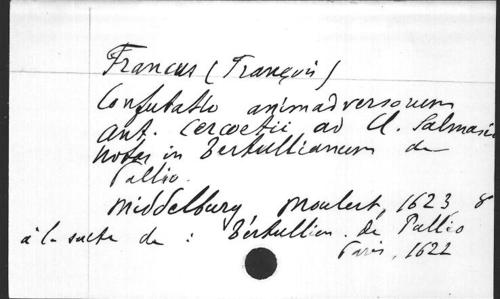 Francus (François)
Confutatio animadversorum
ant. Cercoetii ad Cl. Salmasii
notas in Tertullianum de
Pallio.
Middelburg Moulert, 1623 8°
à la suite de : Tertullien. de Pallio
Paris, 1622